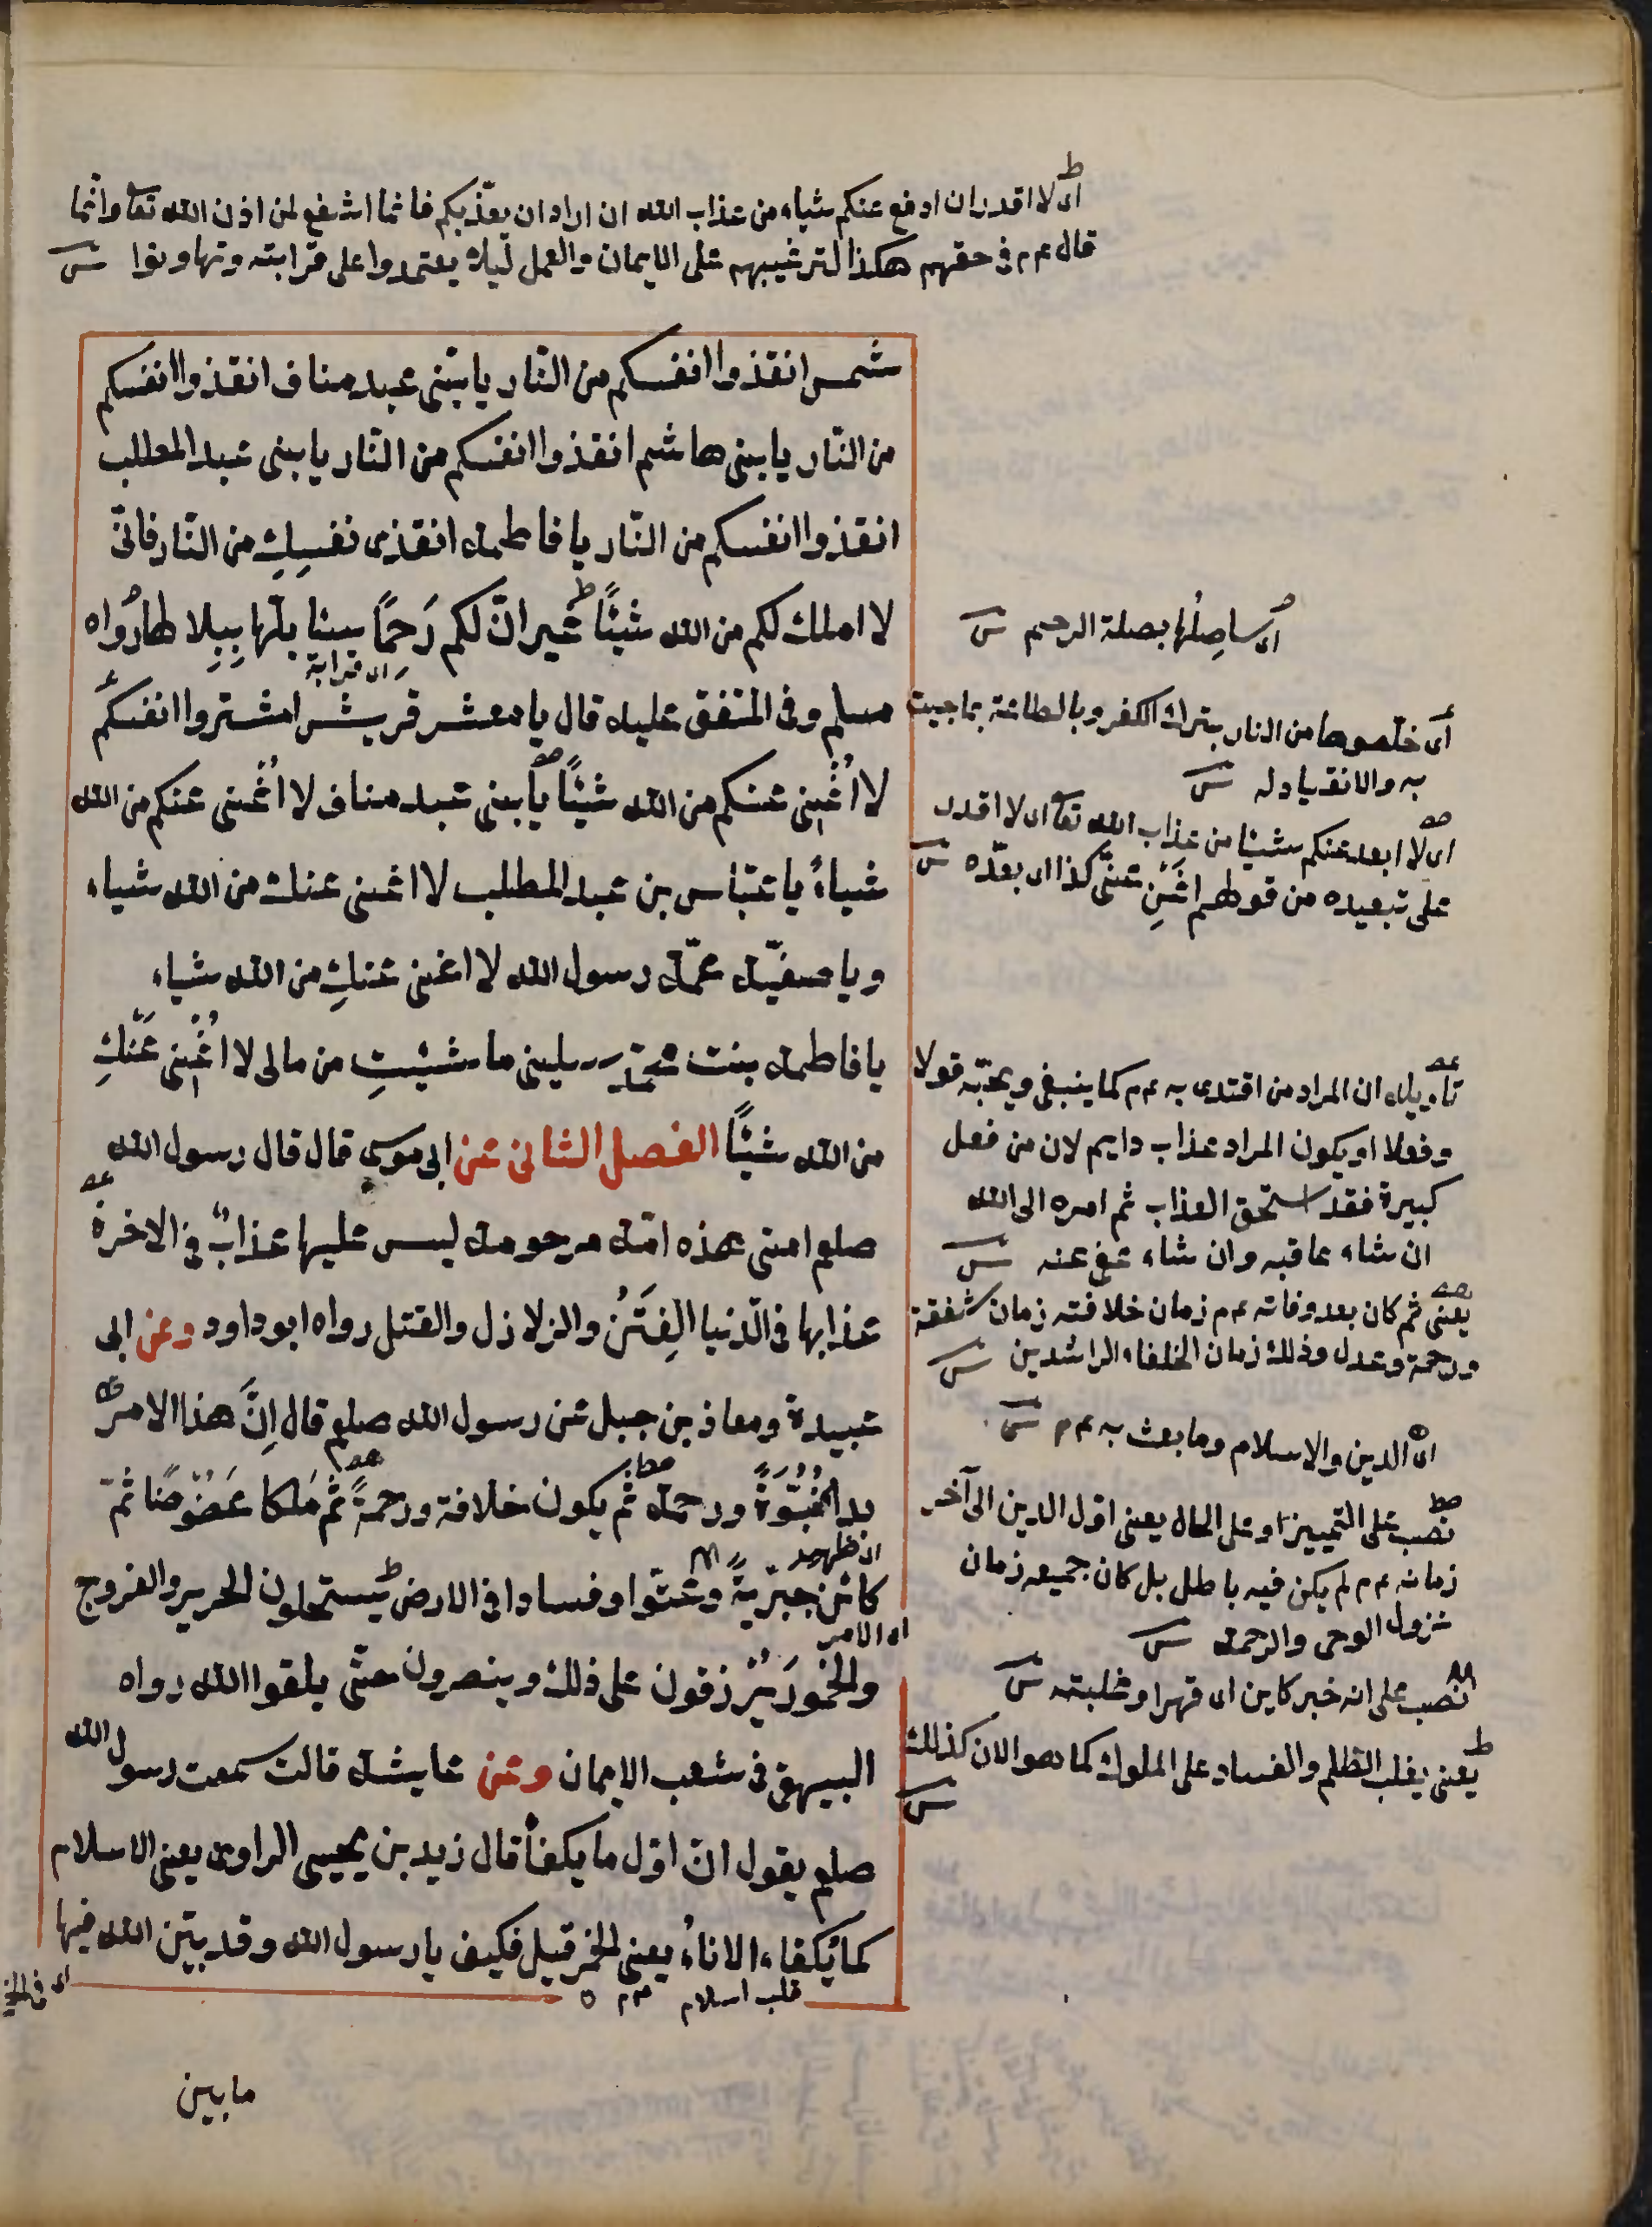 اى لا اقدر ان ادفع عنكم شياء من عذاب الله ان اراد ان يعذّبكم فانما اشفع لمن اذن الله تعا وانّما
قال عم م فى حقهم هكذا لترغيبهم على الايمان والعمل ليلا يعتمدوا على قرابته وتهاونوا ش
شمس انقذوا انفسكم من النّار يا بنى عبد مناف انقذوا انفسكم
من النّار يا بنى هاشم انقذوا انفسكم من النّار يا بنى عبد المطلب
انقذوا انفسكم من النّار يا فاطمة انقذى نفسِكِ من النّار فانّى
لا املك لكم من الله شيئًا غير انّ لكم رَحِمًا سٱبلّها بِبِلالها رَواه
اى قرابة
مسلم وفى المتفق عليه قال يا معشر قريش اشتروا انفسكم
لا اُغْنِى عنكم من الله شيئًا يا بنى عبد مناف لا اُغْنى عنكم من الله
شياءً يا عبّاس بن عبد المطلب لا اغنى عنك من الله شياء
ويا صفيّة عمّة رسول الله لا اغنى عنكِ من الله شياء
يا فاطمة بنت محمّد سلينى ما شئتِ من مالى لا اُغْنِى عَنْكِ
من الله شيئًا الفصل الثانى عن ابى موسى قال قال رسول الله
صلعم امتى هذه امّة مرحومة ليس عليها عذابٌ فى الاخرة
عذابها فى الدّنيا الفِتَنُ والزلازل والقتل رواه ابو داود وعن ابى
عبيدة ومعاذ بن جبل عن رسول الله صلعم قال اِنَّ هذا الامر
بدا نُبُوَّةً ورحمة ثُم يكون خلافة ورحمةً ثُم مُلكا عَضُوضًا ثُمّ
اى ظهر
كائن جبرّيةً وعتوّا وفسادا فى الارض يستحلون الحرير والفروج
اى الامر
والخمورَ يُرْزقون على ذلك وينصرون حتّى يلقوا الله رواه
البيهقى فى شعب الايمان وعن عايشة قالت سمعت رسول الله
صلعم يقول انّ اوّل ما يكفأ قال زيد بن يحيى الراوى يعنى الاسلام
كما يُكفاء الاناءُ يعنى الخمر قيل فكيف يا رسول الله وقد بيّن الله فيها
قلب اسلام
اى فى الخمر
ما بين
اى ساصِلُها بصلة الرحم ش
اى خلّصوها من النار بترك الكفر وبالطاعة بما جيت
به والانقياد له ش
اى لا ابعد عنكم شيئا من عذاب الله تعا اى لا اقدر
على تبعيده من قولهم اغْنِ عنّى كذا اى بعّده ش
تاءويله ان المراد من اقتدى به عم م كما ينبغى ويحبّه قولا
وفعلا او يكون المراد عذاب دايم لان من فعل
كبيرة فقد استحق العذاب ثم امره الى الله
ان شاء عاقبه وان شاء عفى عنه ش
يعنى ثم كان بعد وفاته عم م زمان خلافته زمان شفقة
ورحمة وعدل وذلك زمان الخلفاء الراشدين ش
اى الدين والاسلام وما بعث به عم م ش
نصب على التمييز او على الحال يعنى اوّل الدين الى آخر
زمانه عم م لم يكن فيه باطل بل كان جميعه زمان
نزول الوحى والرحمة ش
نصب على انه خبر كاين اى قهرا وغلبة ش
يعنى يغلب الظلم والفساد على الملوك كما هو الان كذلك
ش